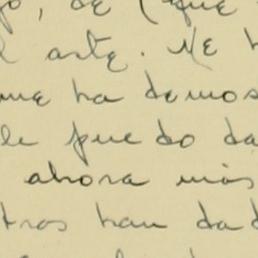 de (que
arte. Me h
me ha demos
le puedo da
ahora más
tros han dad